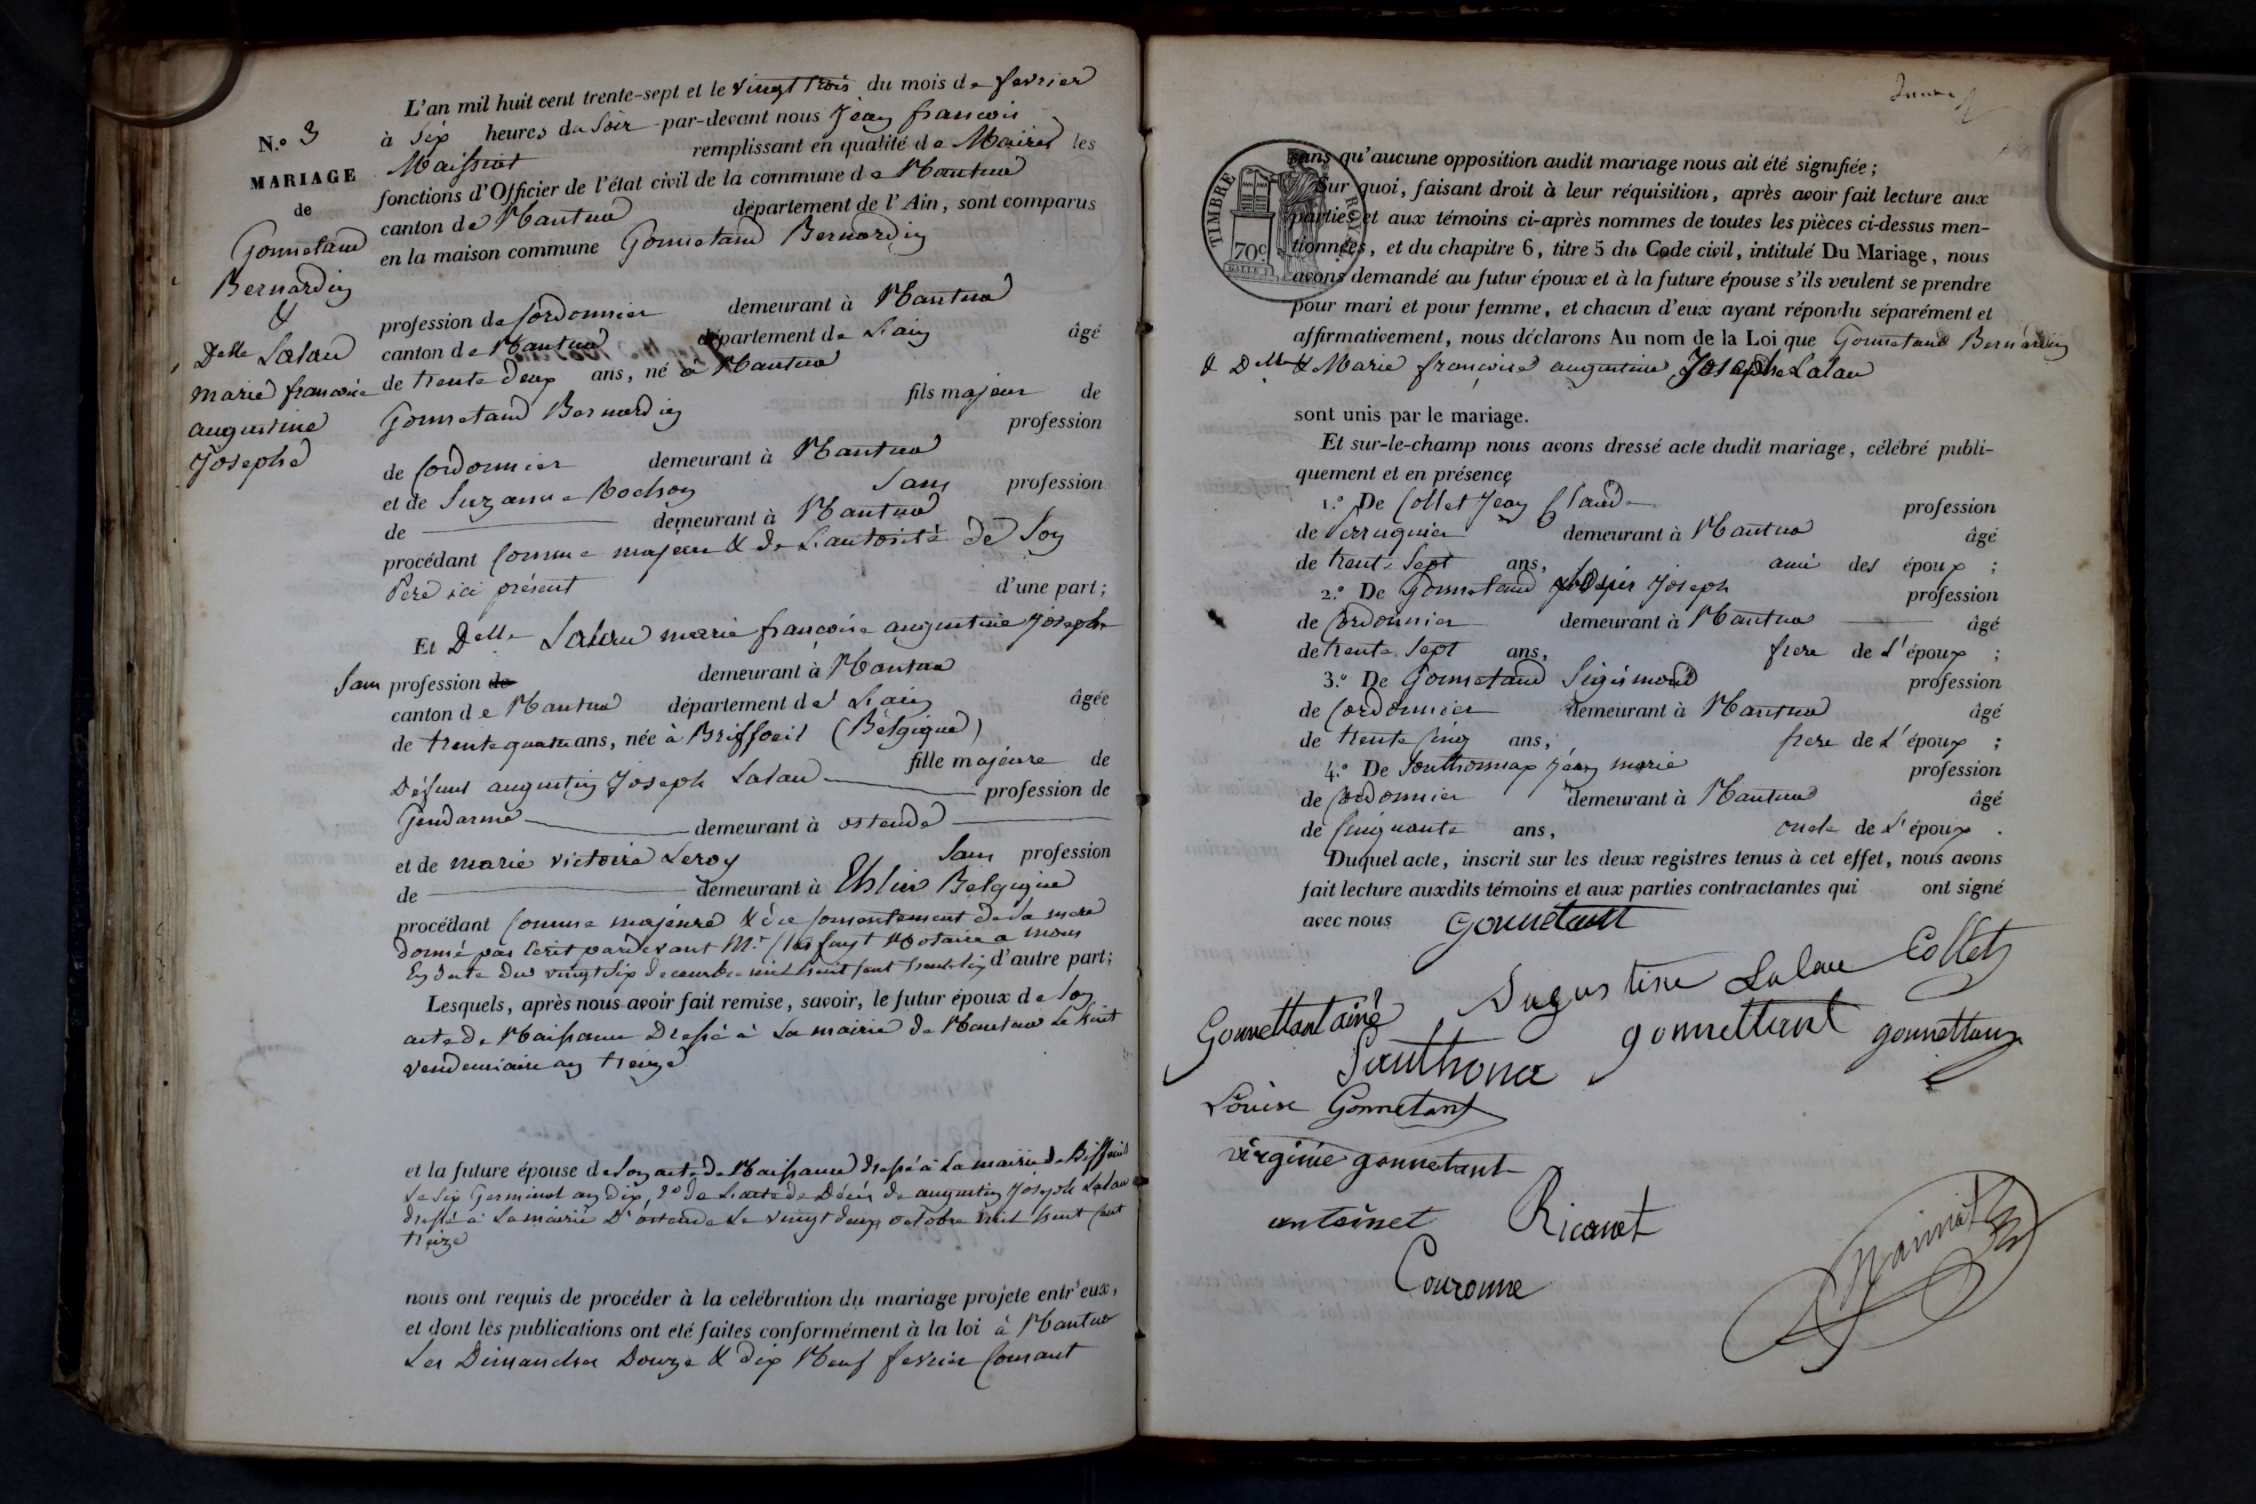 N.° 3
MARIAGE
de
Gonnetand
Bernardin
&
Delle Lalau
marie francoise
augustine
Josephe
L'an mil huit cent trente-sept et le vingt trois du mois de fevrier
à six heures du soir par-devant nous Jean francois
Maissiat remplissant en qualité de Maire les
fonctions d'Officier de l'état civil de la commune de Nantua
canton de Nantua département de l'Ain, sont comparus
en la maison commune Gonnetand Bernardin
profession de Cordonnier demeurant à Nantua
canton de Nantua département de L'ain âgé
de trente deux ans, né à Nantua
fils majeur de
Gonnetand Bernardin profession
de Cordonnier demeurant à Nantua
et de Suzanne Rochon Sans profession
de demeurant à Nantua
procédant Comme majeur & de L'autorité de Son
Pere ici présent d'une part;
Et Delle Lalau marie francoise augustine Josephe
Sans profession de demeurant à Nantua
canton de Nantua département de L'ain âgée
de trente quatre ans, née à Briffoeil (Belgique)
fille majeure de
Défunt augustin Joseph Lalau profession de
Gendarme demeurant à ostende
et de marie victoire Leroy Sans profession
de demeurant à Belgique
procédant Comme majeure & du Consentement de Sa mere
donné par Ecrit pardevant Mr. Notaire a mons
En date du vingt Six decembre mil huit Cent trente Six d'autre part;
Lesquels, après nous avoir fait remise, savoir, le futur époux de Son
acte de Naissance Dressé à La mairie de Nantua Le huit
vendemiaire an treize
et la future épouse de Son acte de Naissance dressé à La mairie de Biffoeil
Le Six Germinal an dix, 2° de L'acte de Décès de augustin Joseph Lalau
dressé à La mairie D'ostende Le vingt deux octobre mil huit Cent
treize
nous ont requis de procéder à la celébration du mariage projeté entr'eux,
et dont les publications ont eté faites conformément à la loi à Nantua
Les Dimanches Douze & dix Neuf fevrier Courant
TIMBRE ROYAL
70c
sans qu'aucune opposition audit mariage nous ait été signifiée;
Sur quoi, faisant droit à leur réquisition, après avoir fait lecture aux
parties et aux témoins ci-après nommes de toutes les pièces ci-dessus men-
tionnées, et du chapitre 6, titre 5 du Code civil, intitulé Du Mariage, nous
avons demandé au futur époux et à la future épouse s'ils veulent se prendre
pour mari et pour femme, et chacun d'eux ayant répondu séparément et
affirmativement, nous déclarons Au nom de la Loi que Gonnetand Bernardin
& Delle & Marie françoise augustine Josephe Lalau
sont unis par le mariage.
Et sur-le-champ nous avons dressé acte dudit mariage, célébré publi-
quement et en présence
1.° De Collet Jean Claude profession
de Perruquier demeurant à Nantua âgé
de trente Sept ans, ami des époux ;
2.° De Gonnetand Joseph profession
de Cordonnier demeurant à Nantua âgé
de trente Sept ans, frere de L'époux ;
3.° De Gonnetand Sigismond profession
de Cordonnier demeurant à Nantua âgé
de trente Cinq ans, frere de L'époux ;
4.° De Jean marie profession
de Cordonnier demeurant à Nantua âgé
de Cinquante ans, oncle de L'époux .
Duquel acte, inscrit sur les deux registres tenus à cet effet, nous avons
fait lecture auxdits témoins et aux parties contractantes qui ont signé
avec nous Gonnetant
Augustine Lalau Collet
Gonnettant ainé gonnettant gonnettant
Santhona
Louise Gonnetant
virginie gonnetant
antoinet Ricanet
Couronne
Maissiat